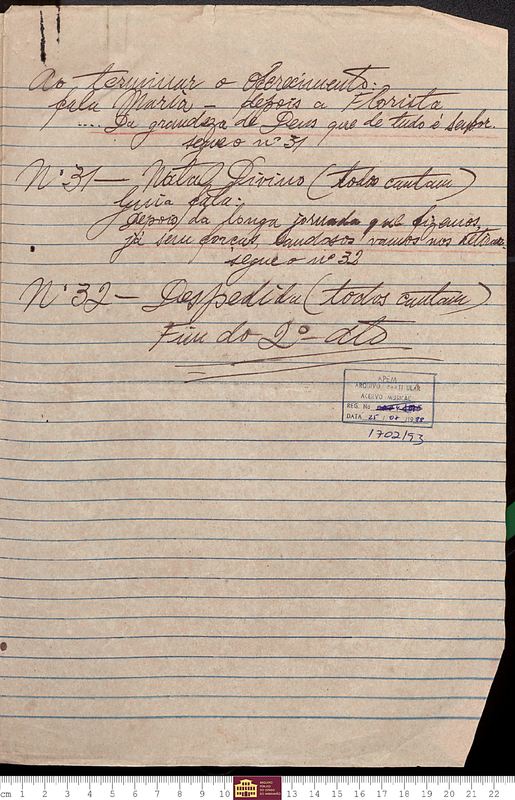 Ao terminar o oferecimento.
fala Maria – depois a Florista
.... Da grandeza de Deus que de tudo é senhor.
segue o nº 31
Nº 31 – Natal Divino (todos cantam)
Guia fala:
depois da longa jornada que fizemos,
já sem forças, vamos nos retirar
segue o nº 32
Nº 32 – Despedida (todos cantam)
Fim do 2º – Ato
APEM
ARQUIVO PARTICULAR
ACERVO MUSICAL
REG. No
DATA 25 / 01 /1988
1702/93
cm 1 2 3 4 5 6 7 8 9 10 13 14 15 16 17 18 19 20 21 22
ARQUIVO
PÚBLICO
DO ESTADO
DO MARANHÃO